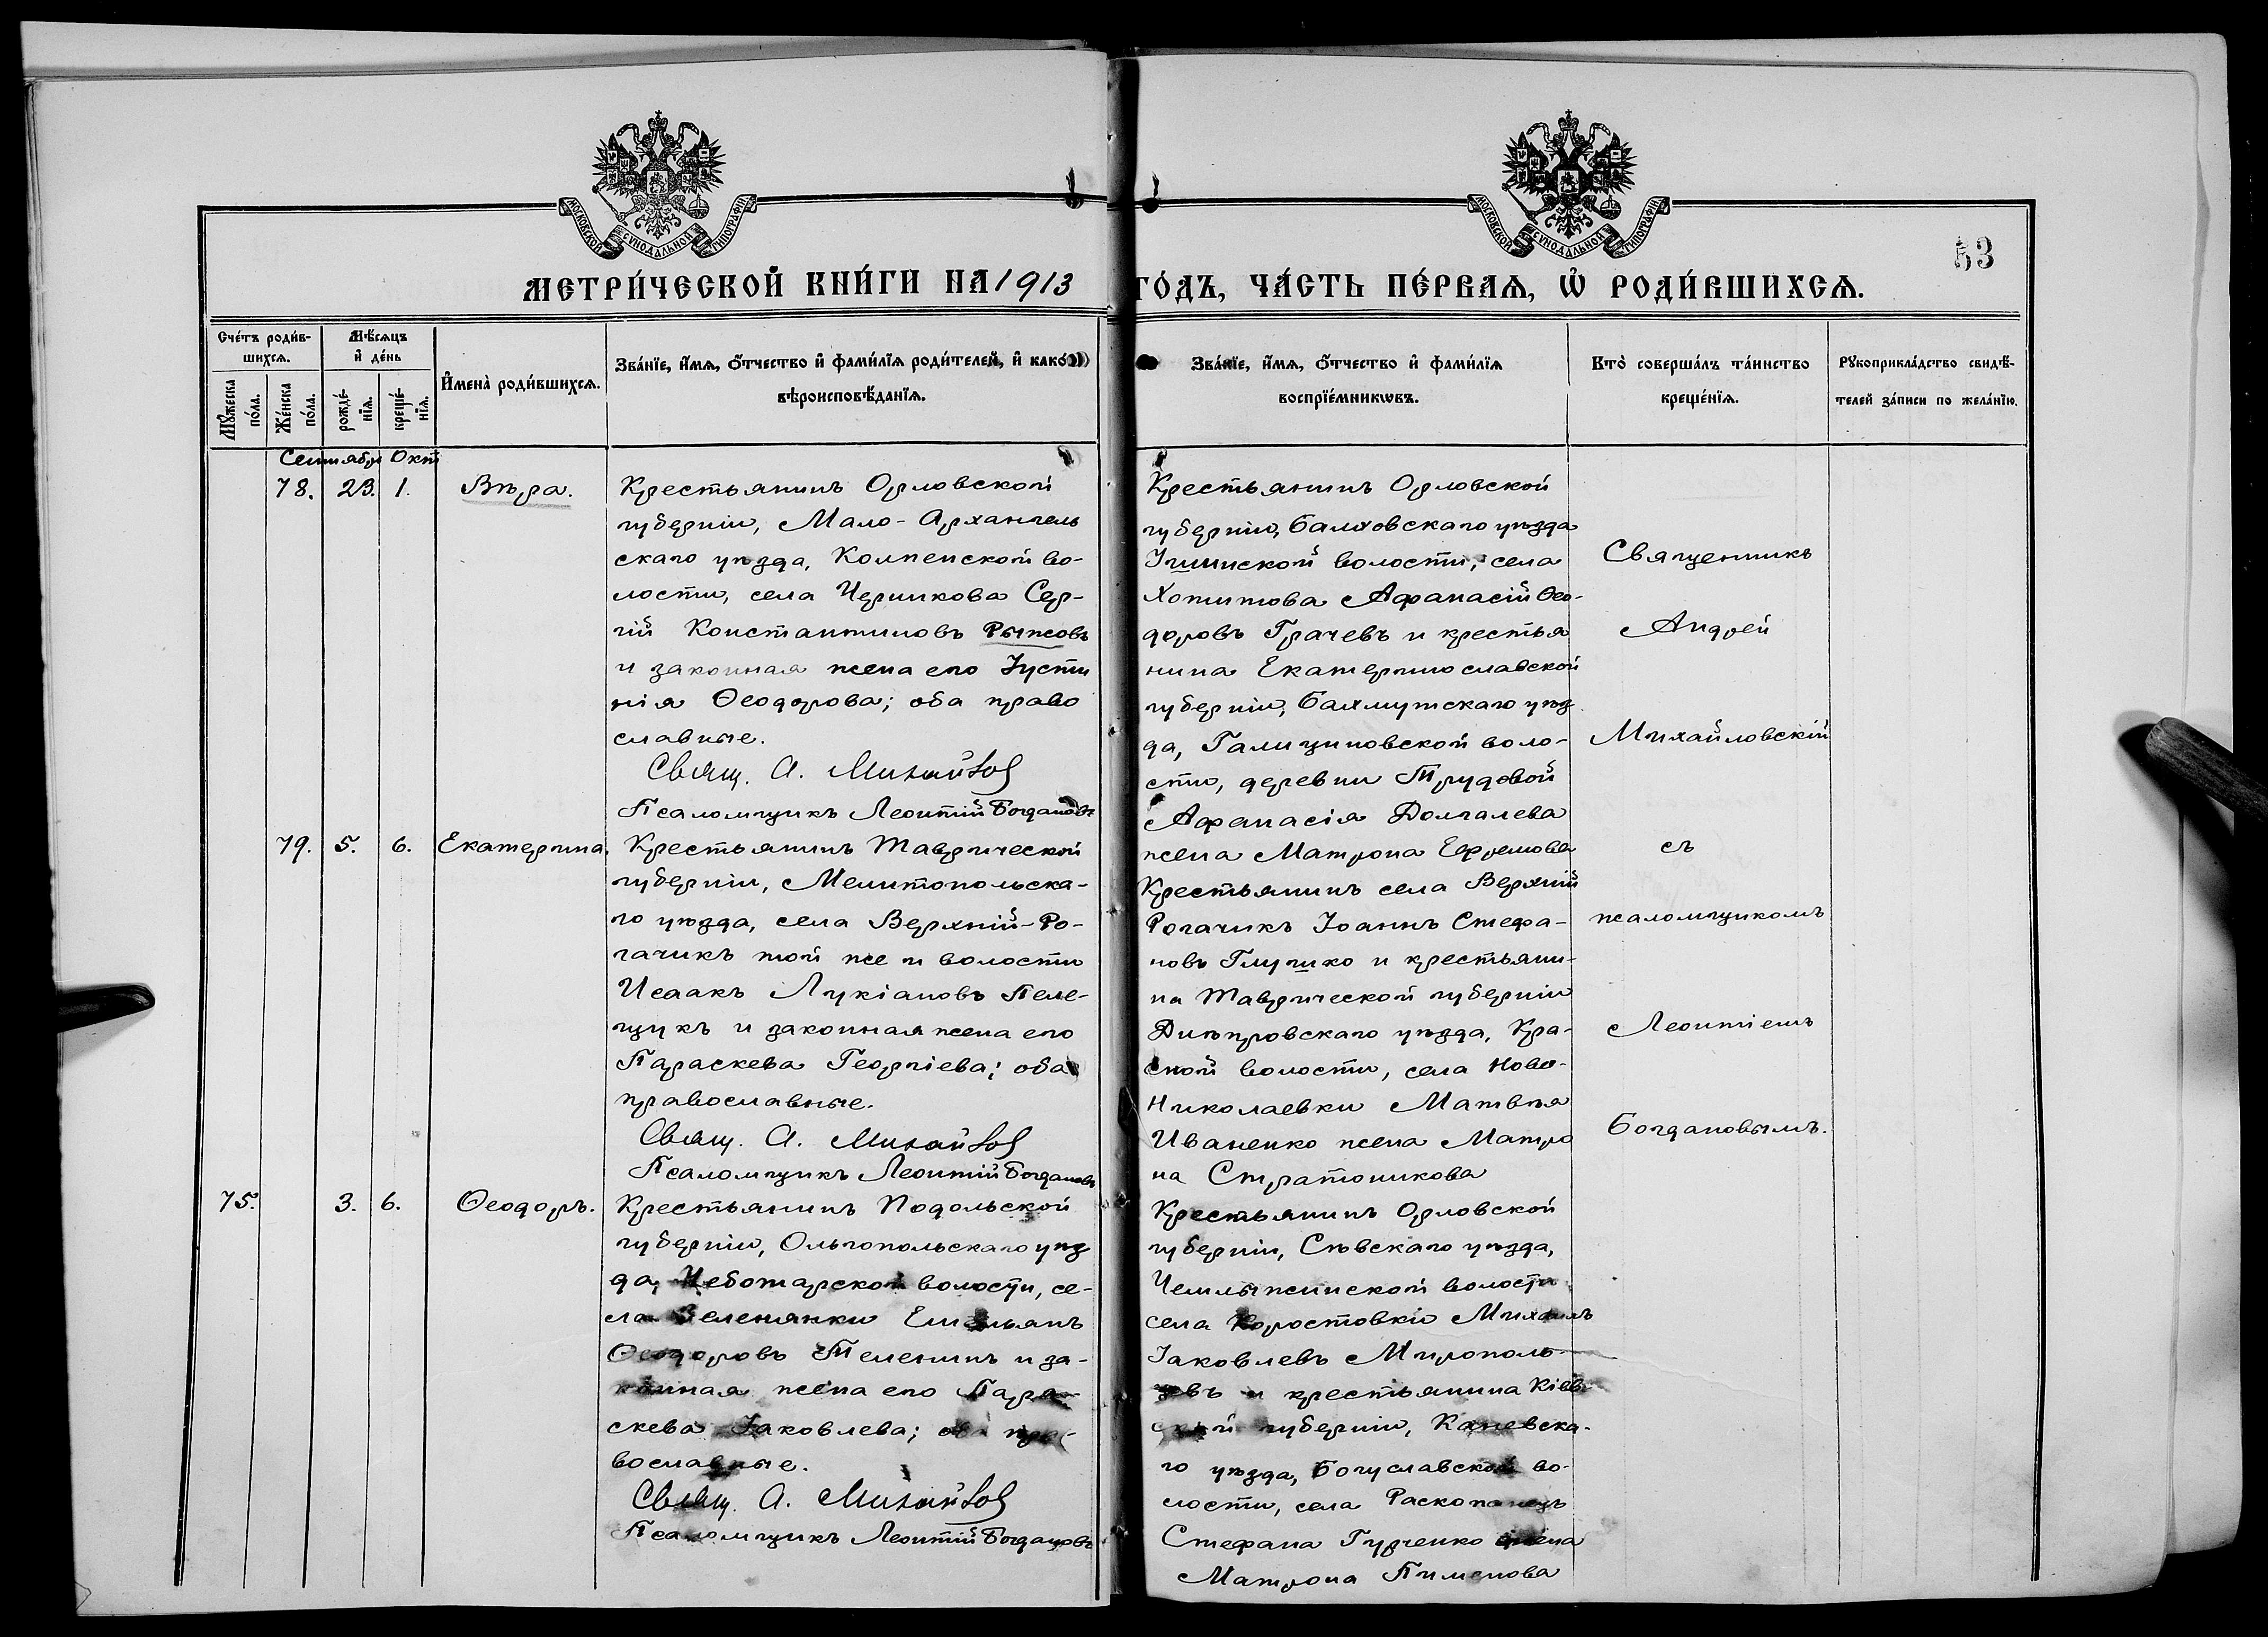 МОСКОВСКОЙ СѴНОДАЛЬНОЙ ТИПОГРАФІИ
МОСКОВСКОЙ СѴНОДАЛЬНОЙ ТИПОГРАФІИ
53
МЕТРИ́ЧЕСКОЙ КНИ́ГИ НА 1913
ГО́ДЪ, ЧА́СТЬ ПЕ́РВАѦ, Ѡ҆ РОДИ́ВШИХСѦ.
Сче́тъ роди́в-
шихсѧ.
Мꙋ́жеска по́ла.
Же́нска по́ла.
Мѣ́сѧцъ
и҆ де́нь
рожде́-
нїѧ.
креще́-
нїѧ.
И҆мена̀ роди́вшихсѧ.
Зва́нїе, и҆́мѧ, ѻ҆́тчество и҆ фами́лїѧ роди́телей, и҆ како́
вѣроисповѣ́данїѧ.
Зва́нїе, и҆́мѧ, ѻ҆́тчество и҆ фами́лїѧ
воспрїе́мникѡвъ.
Кто̀ соверша́лъ та́инство
креще́нїѧ.
Рꙋкоприкла́дство свидѣ́-
телей за́писи по жела́нїю.
Сентября Окт
78. 23. 1. Вѣра.
Крестьянинъ Орловской
губерніи, Мало-Архангель
скаго уѣзда, Колпенской во-
лости, села Черникова Сер-
гій Константиновъ Рыжовъ
и законная жена его Іусти
нія Ѳеодорова; оба право
славные.
Свящ. А. Михайлов
Псаломщикъ Леонтій Богдановъ
Крестьянинъ Орловской
губерніи, Балховскаго уѣзда
волости, села
Хотитова Афанасій Ѳео-
доровъ Грачевъ и крестья
нина Екатеринославской
губерніи, Бахмутскаго уѣз
да, Галициновской воло-
сти, деревни Трудовой
Афанасія Долгалева
жена Матрона Ефремова
79. 5. 6. Екатерина.
Крестьянинъ Таврической
губерніи, Мелитопольска-
го уѣзда, села Верхній-Ро-
гачикъ той же и волости
Исаакъ Лукіановъ Пеле-
щукъ и законная жена его
Параскева Георгіева; оба
православные.
Свящ. А. Михайлов
Псаломщикъ Леонтій Богдановъ
Крестьянинъ села Верхній
Рогачикъ Іоаннъ Стефа-
новъ Глушко и крестьяни-
на Таврической губерніи
Днѣпровскаго уѣзда, Кра-
ской волости, села Ново-
Николаевки Матвѣя
Иваненко жена Матро
на Стратоникова
75. 3. 6. Ѳеодоръ.
Крестьянинъ Подольской
губерніи, Ольгопольскаго уѣз
да, Чеботарской волости, се-
ла Зеленянки Емельянъ
Ѳеодоровъ Теленинъ и за-
конная жена его Пара-
скева Іаковлева; оба пра-
вославные.
Свящ. А. Михайлов
Псаломщикъ Леонтій Богдановъ
Крестьянинъ Орловской
губерніи, Сѣвскаго уѣзда,
Чемлыжинской волости
села Коростовки Михаилъ
Іаковлевъ Мирополь-
цевъ и крестьянина Кіев-
ской губерніи, Каневска-
го уѣзда, Богуславской во-
лости, села Раскопанецъ
Стефана Гурченко жена
Матрона Пименова
Священникъ
Андрей
Михайловскій
съ
псаломщикомъ
Леонтіемъ
Богдановымъ.